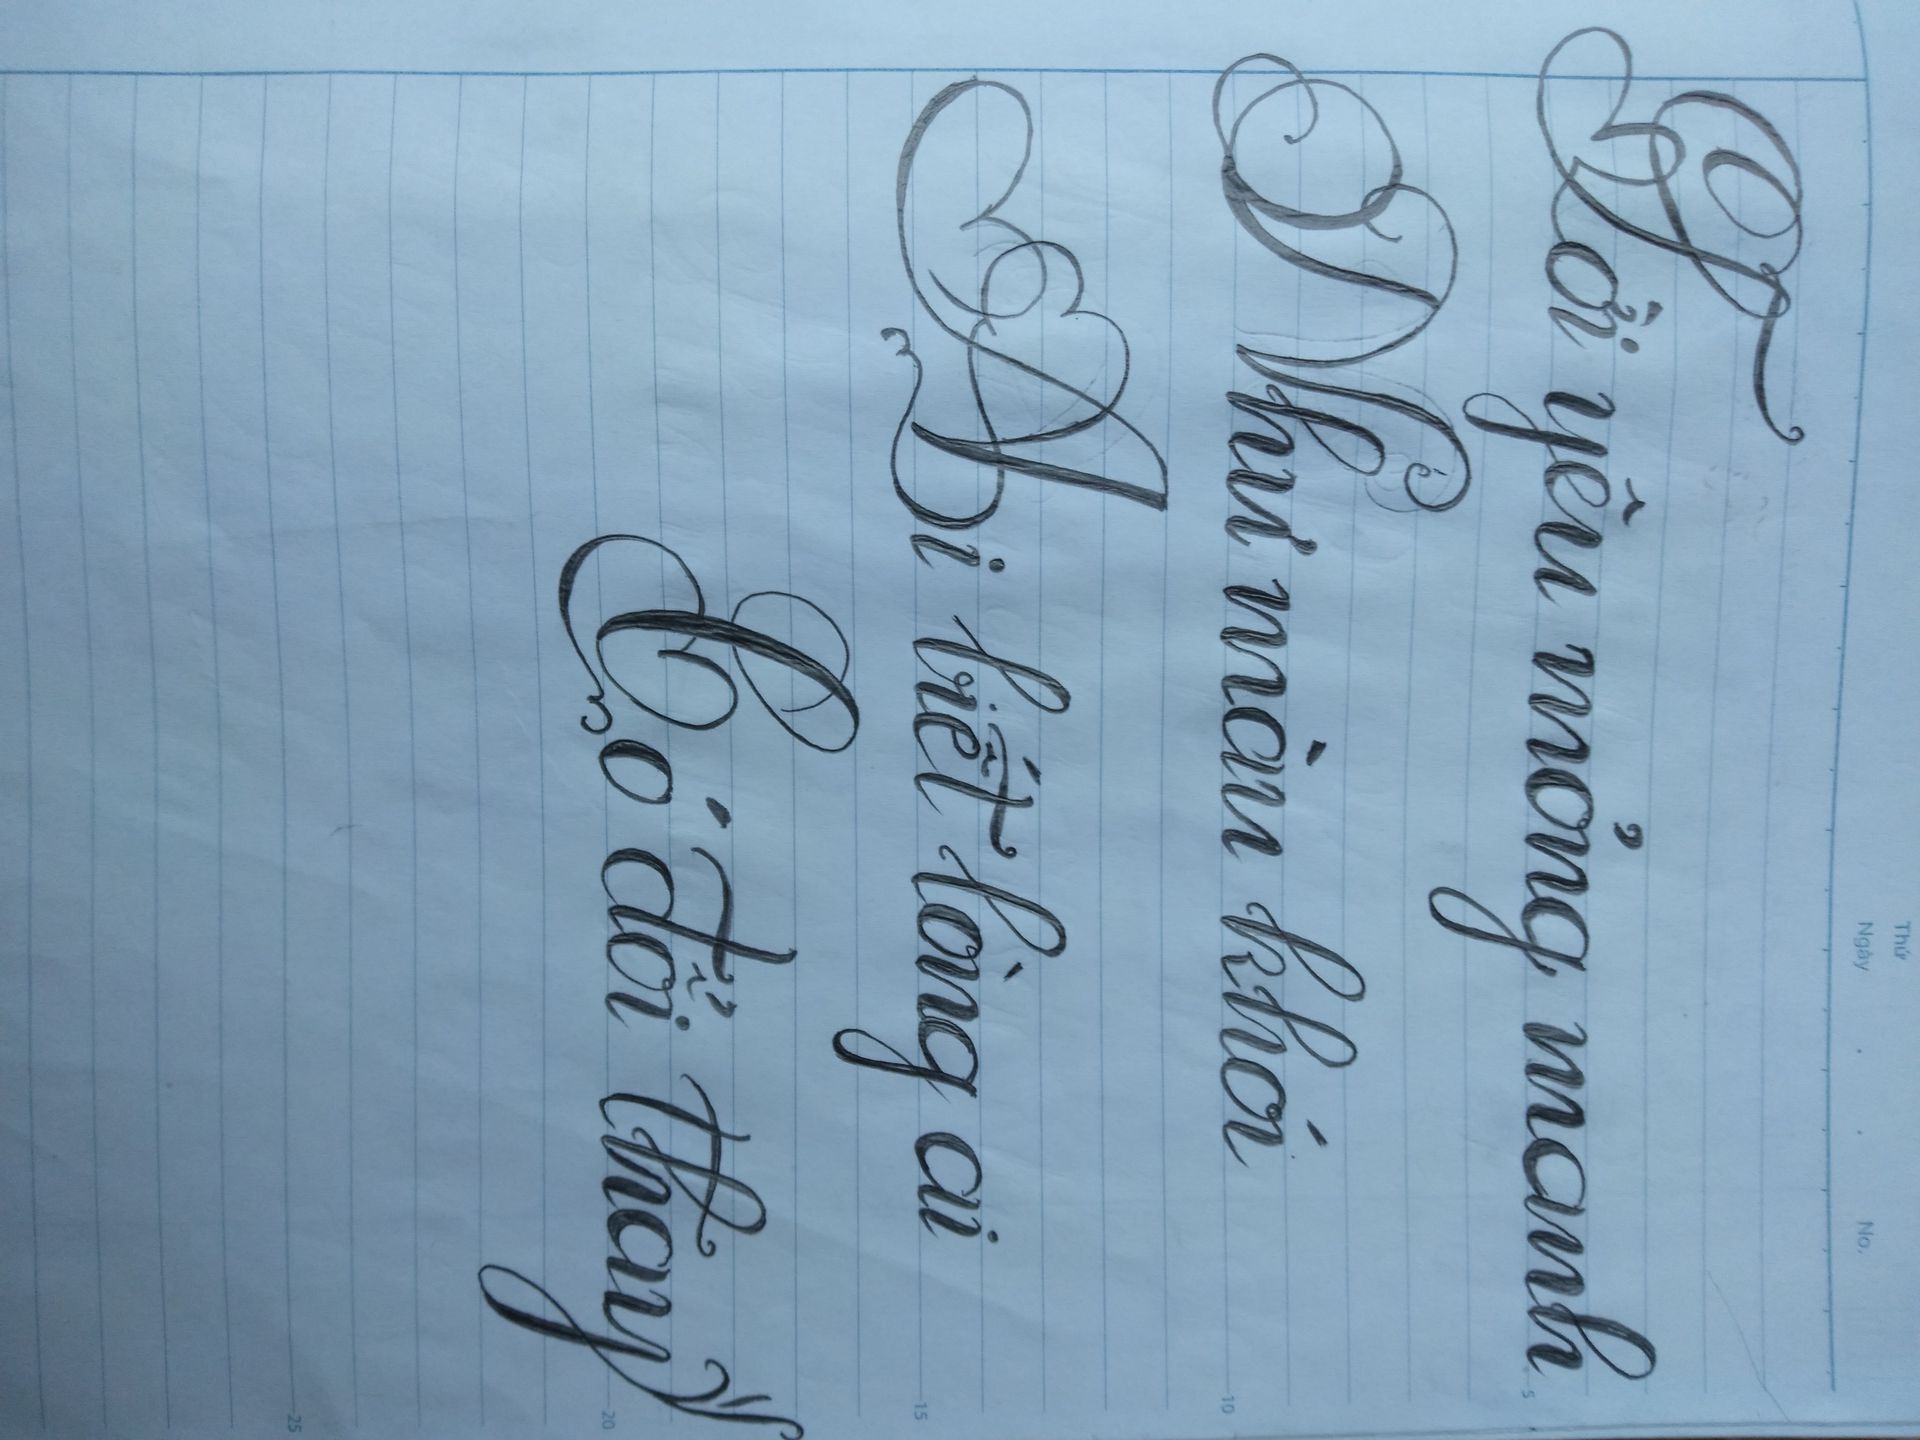 Thứ
Ngày . . No.
Lời yêu mỏng manh
Như màn khói
Ai biết lòng ai
Có đổi thay
5
10
15
20
25